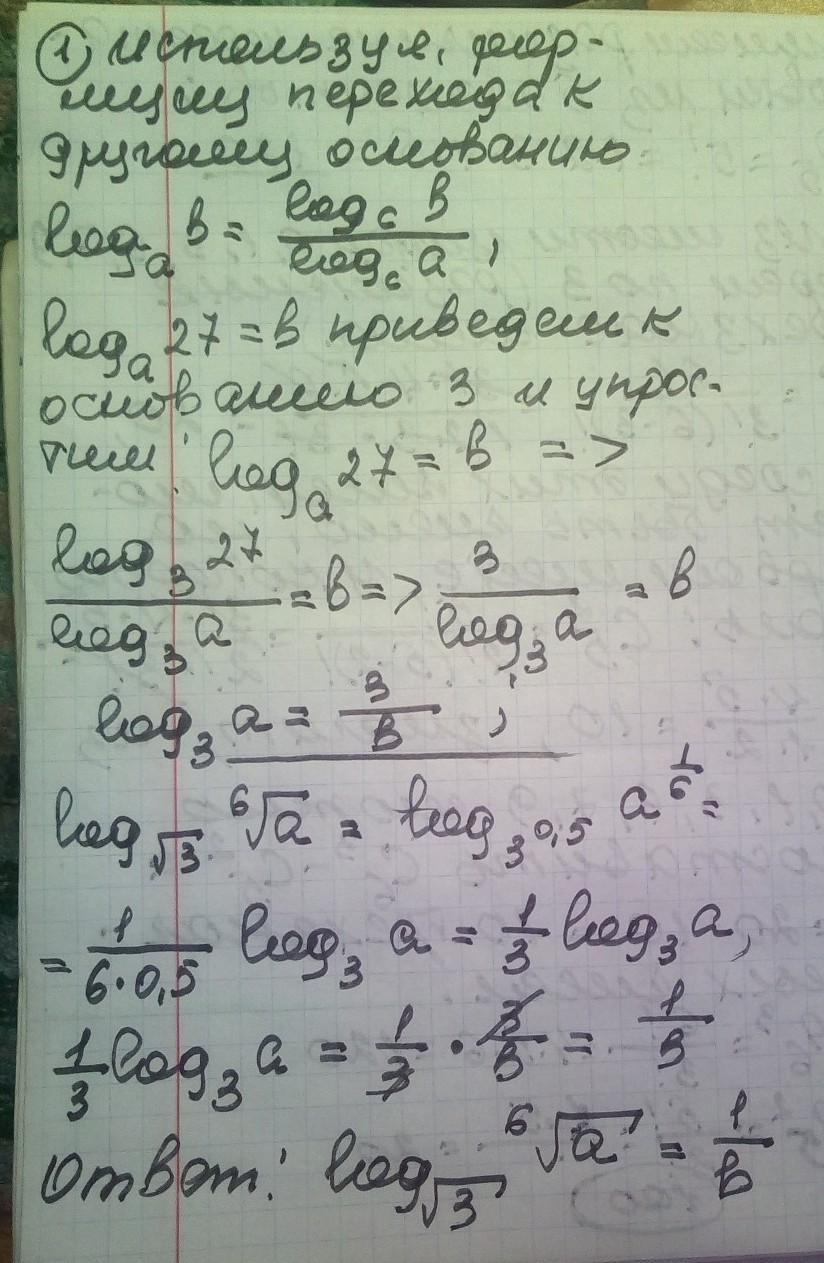 1) используя, фор-
мулу перехода к
другому основанию
log_a b = log_c b / log_c a ,
log_a 27 = b приведем к
основанию 3 и упрос-
тим: log_a 27 = b =>
log_3 27 / log_3 a = b => 3 / log_3 a = b
log_3 a = 3/b ;
log_√3 ⁶√a = log_3^0,5 a^1/6 =
= 1/(6·0,5) log_3 a = 1/3 log_3 a,
1/3 log_3 a = 1/3 · 3/b = 1/b
Ответ: log_√3 ⁶√a = 1/b